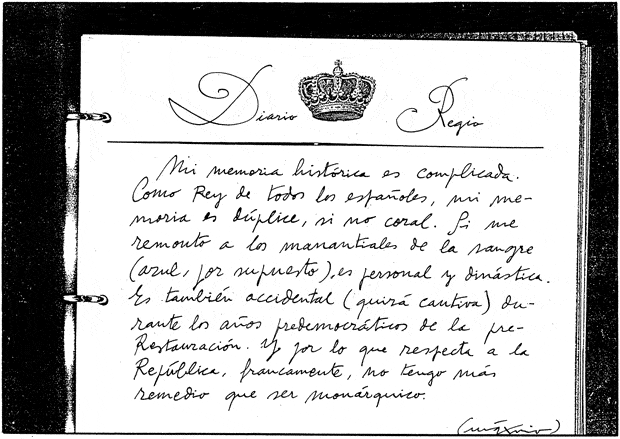 Diario Regio
Mi memoria histórica es complicada.
Como Rey de todos los españoles, mi me-
moria es dúplice, si no coral. Si me
remonto a los manantiales de la sangre
(azul, por supuesto), es personal y dinástica.
Es también accidental (quizá cautiva) du-
rante los años predemocráticos de la pre-
Restauración. Y por lo que respecta a la
República, francamente, no tengo más
remedio que ser monárquico.
(máximo)